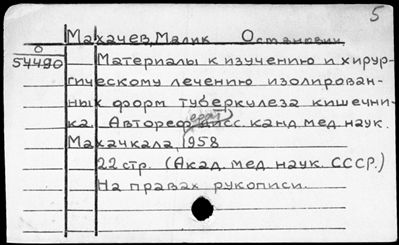 5
Махачев, Малик Османович
О
54490
Материалы к изучению и хирур-
гическому лечению изолирован-
ных форм туберкулеза кишечни-
ка. Автореф. дисс. канд. мед. наук.
Махачкала, 1958
22 стр. (Акад. мед. наук. СССР.)
На правах рукописи.